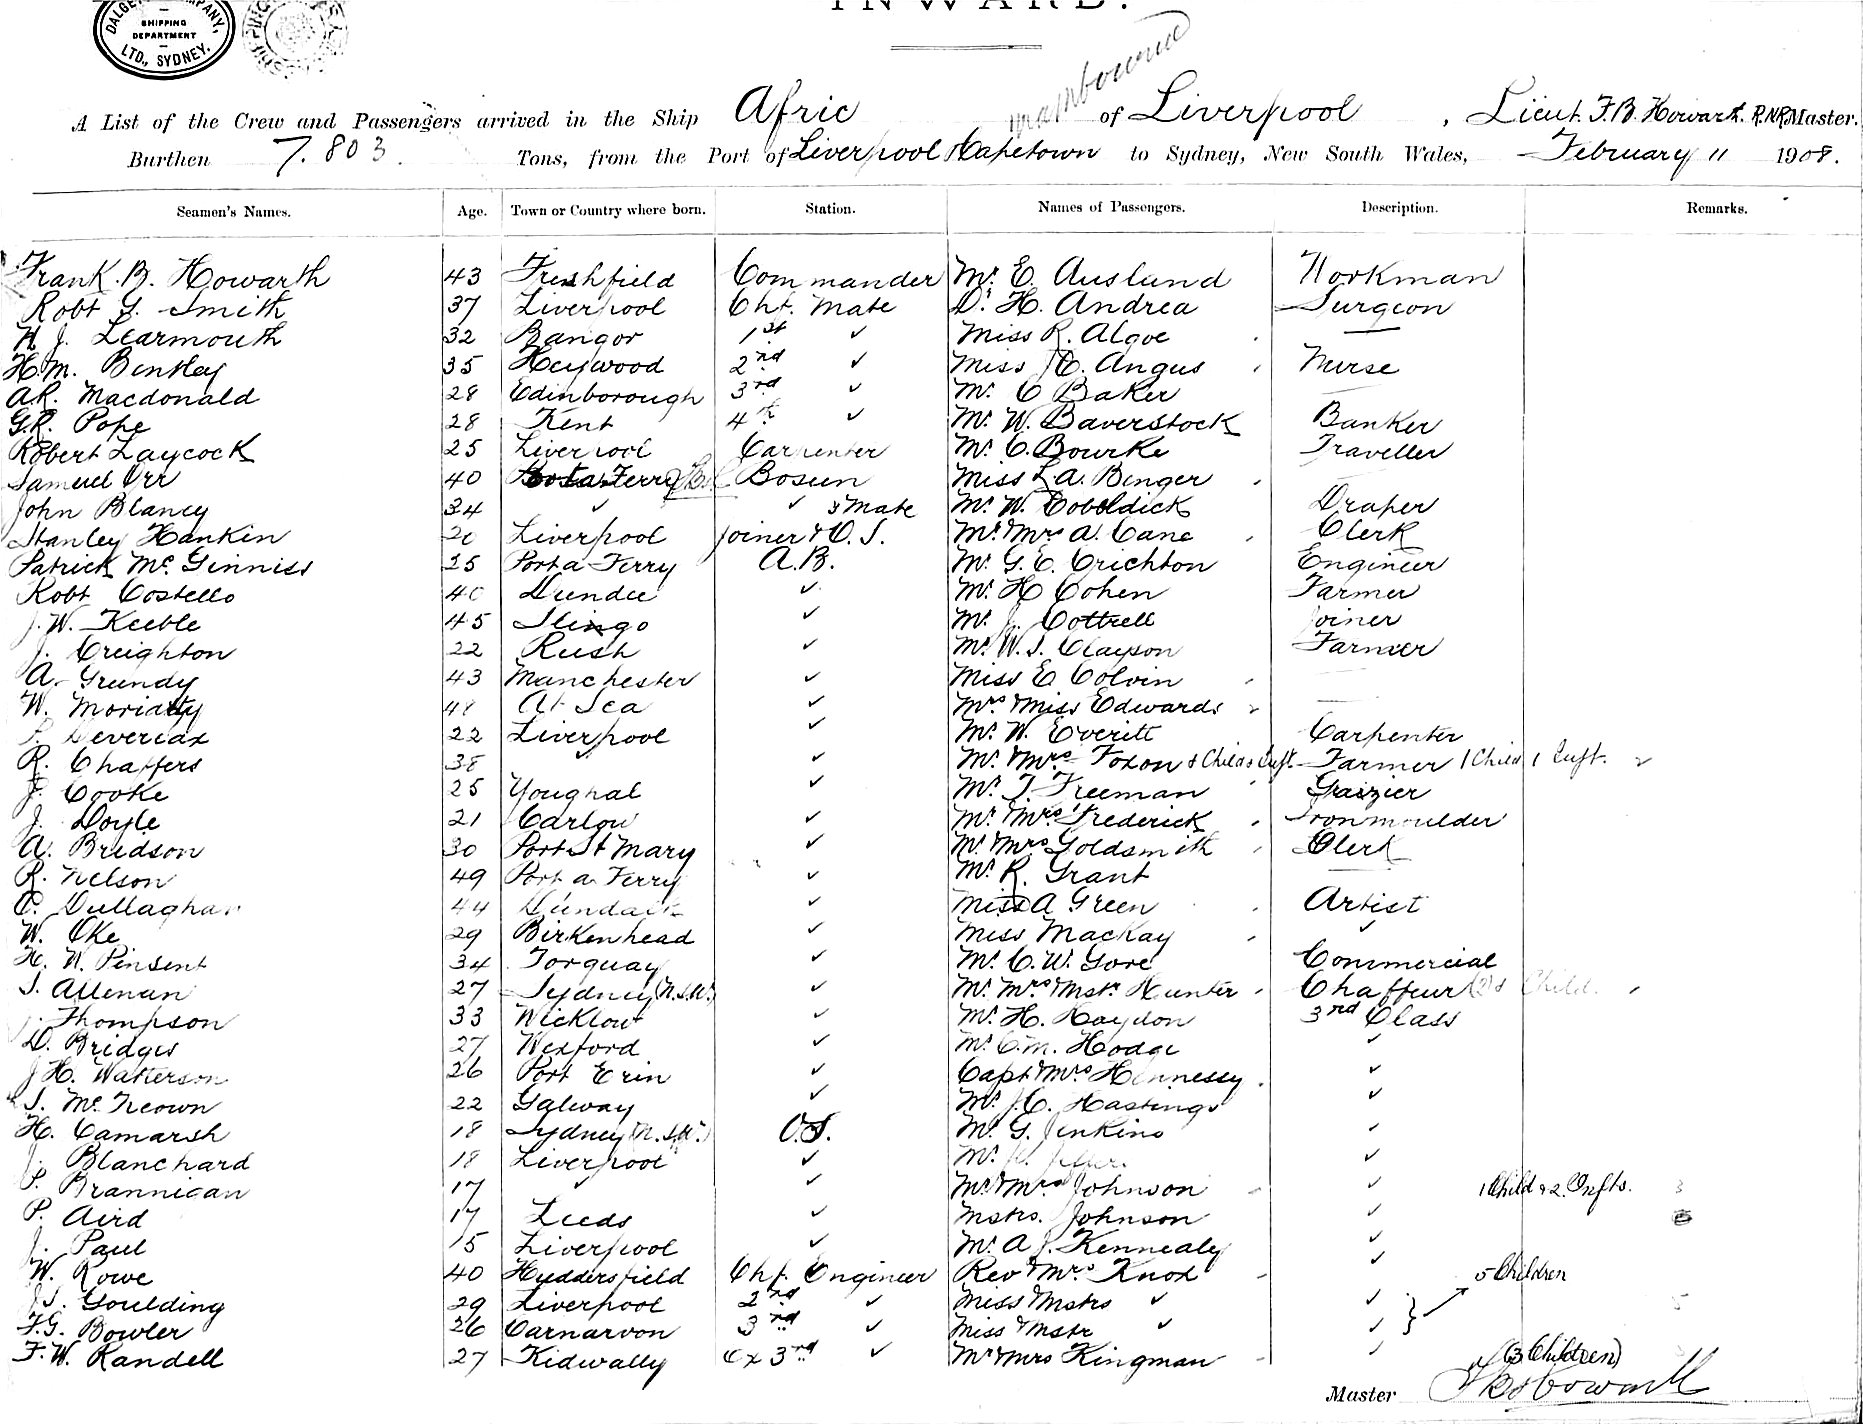 DALGETY COMPANY, LTD., SYDNEY.
SHIPPING DEPARTMENT
INWARD.
A List of the Crew and Passengers arrived in the Ship Afric of Liverpool, Lieut. F. B. Howarth. R.N.R Master.
Burthen 7.803. Tons, from the Port of Liverpool & Capetown to Sydney, New South Wales, February 11 1908.
Seamen's Names. Age. Town or Country where born. Station. Names of Passengers. Description. Remarks.
Frank. B. Howarth 43 Freshfield Commander Mr. E. Ausland Workman
Robt G. Smith 37 Liverpool Chf. Mate Dr. H. Andrea Surgeon
H. J. Learmouth 32 Bangor 1st ✓ Miss R. Algoe —
H. M. Bentley 35 Heywood 2nd ✓ Miss H. Angus Nurse
A. R. Macdonald 28 Edinborough 3rd ✓ Mr. C Baker —
G. R. Pope 28 Kent 4th ✓ Mr. W. Baverstock Banker
Robert Laycock 25 Liverpool Carpenter Mr. C. Bourke Traveller
Samuel Orr 40 Ferry Bosun Miss L. A. Binger
John Blaney 34 ✓ ✓ s Mate Mr. W. Coboldick Draper
Stanley Hankin Liverpool Joiner & O. S. Mr. & Mrs A. Cane Clerk
Patrick Mc. Ginniss 25 Port a Ferry A.B. Mr. G. E. Crichton Engineer
Robt Costello 40 Dundee ✓ Mr. H Cohen Farmer
J. W. Keeble 45 Slingo ✓ Mr. J. Cottrell Joiner
J. Creighton 22 Rush ✓ Mr. W. S. Clayson Farmer
A. Grundy 43 Manchester ✓ Miss E Colvin —
W. Moriarty 48 At Sea ✓ Mrs & Miss Edwards —
Deveriax 22 Liverpool ✓ Mr. W. Everitt Carpenter
R. Chaffers 38 ✓ ✓ Mr. & Mrs Foxon & Child & Inft. Farmer 1 Child 1 Inft.
J. Cooke 25 Youghal ✓ Mr. T. Freeman Graizier
J. Doyle 21 Carlow ✓ Mr. & Mrs Frederick Ironmoulder
A. Bridson 30 Port St Mary ✓ Mr. & Mrs Goldsmith Clerk
R. Nelson 49 Port a Ferry ✓ Mr. R. Grant —
C. Dullaghan 44 Dundalk ✓ Miss A Green Artist
W. Oke 29 Birkenhead ✓ Miss Mackay ✓
H. W. Pinsent 34 Torquay ✓ Mr. C. W. Gore Commercial
S. Allenan 27 Sydney (N.S.W.) ✓ Mr. Mrs & Mstr. Hunter Chaffeur Child.
J. Thompson 33 Wicklow ✓ Mr. H. Haydon 3rd Class
D. Bridges 27 Wexford ✓ Mr. C. M. Hodge ✓
J. H. Watterson 26 Port Erin ✓ Capt & Mrs Hennessy ✓
S. Mc. Keown 22 Galway ✓ Mr. J. C. Hastings ✓
H. Camarsh 18 Sydney (N.S.W.) O.S. Mr. G. Jenkins ✓
J. Blanchard 18 Liverpool ✓ Mr. ✓
P. Brannigan 17 ✓ ✓ Mr. & Mrs Johnson ✓ 1 Child & 2 Infts. 3
P. Aird 17 Leeds ✓ Mstrs. Johnson ✓
J. Paul 15 Liverpool ✓ Mr. A. J. Kennealy ✓
W. Rowe 40 Huddersfield Chf. Engineer Rev & Mrs Knox ✓ 5 Children
J. S. Goulding 29 Liverpool 2nd ✓ Miss & Mstrs ✓ ✓
F. G. Bowler 26 Carnarvon 3rd ✓ Miss & Mstr ✓ ✓
F. W. Randell 27 Kidwally Ex 3rd ✓ Mr & Mrs Kingman ✓ (3 Children)
Master F B Howarth